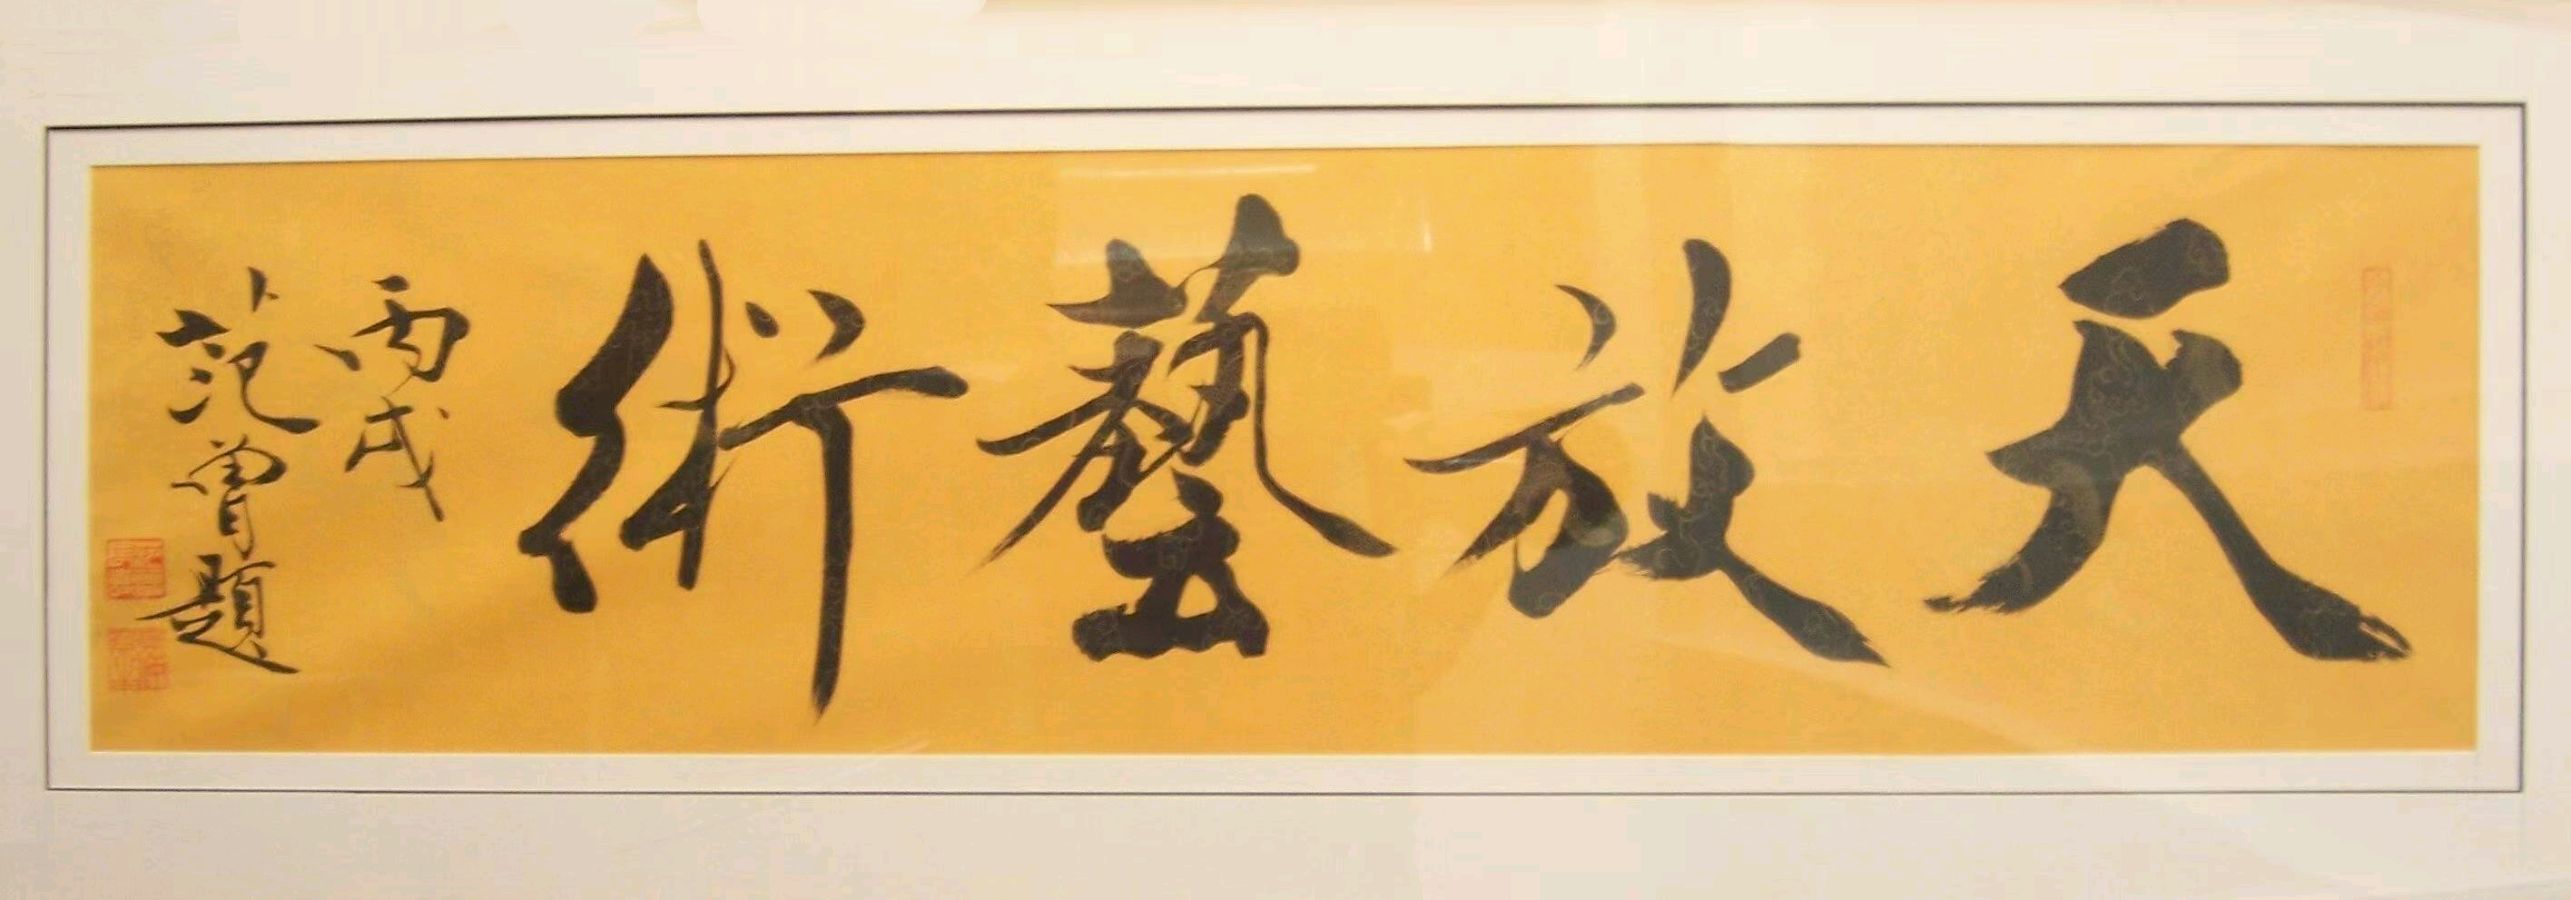 天放藝術
丙戌
范曾題